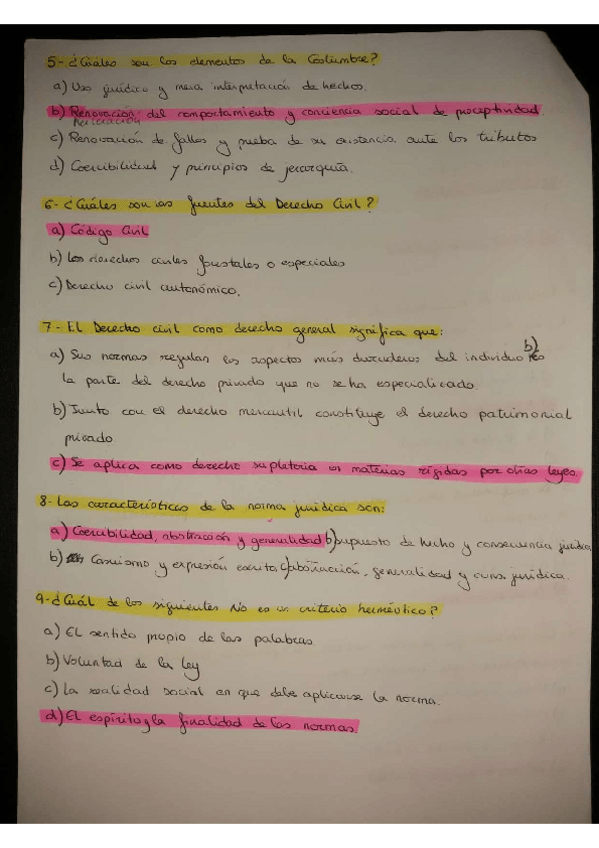 5-¿Cuáles son los elementos de la Costumbre?
a) Uso jurídico y mera interpretación de hechos.
b) Renovación del comportamiento y conciencia social de preceptividad.
Reiteración
c) Renovación de fallos y prueba de su existencia ante los tributos
d) Coercibilidad y principios de jerarquía.
6-¿Cuáles son las fuentes del Derecho Civil?
a) Código Civil
b) Los derechos civiles forales o especiales
c) Derecho civil autonómico.
7- El Derecho civil como derecho general significa que:
a) Sus normas regulan los aspectos más duraderos del individuo b) es
la parte del derecho privado que no se ha especializado.
b) Junto con el derecho mercantil constituye el derecho patrimonial
privado.
c) Se aplica como derecho supletorio en materias regidas por otras leyes.
8-Las características de la norma jurídica son:
a) Coercibilidad, abstracción y generalidad b) supuesto de hecho y consecuencia jurídica
b) Casuismo y expresión escrita, c) abstracción, generalidad y jurídica.
9-¿Cuál de los siguientes No es un criterio herméutico?
a) El sentido propio de las palabras.
b) Voluntad de la ley
c) La realidad social en que debe aplicarse la norma.
d) El espíritu y la finalidad de las normas.